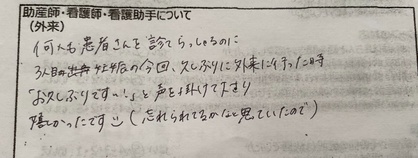 助産師・看護師・看護助手について
(外来)
何人も患者さんを診てらっしゃるのに
3人目の出産 妊娠の今回、久しぶりに外来に行った時
「お久しぶりです!」と声を掛けて下さり
嬉しかったです (忘れられてるかなと思っていたので)